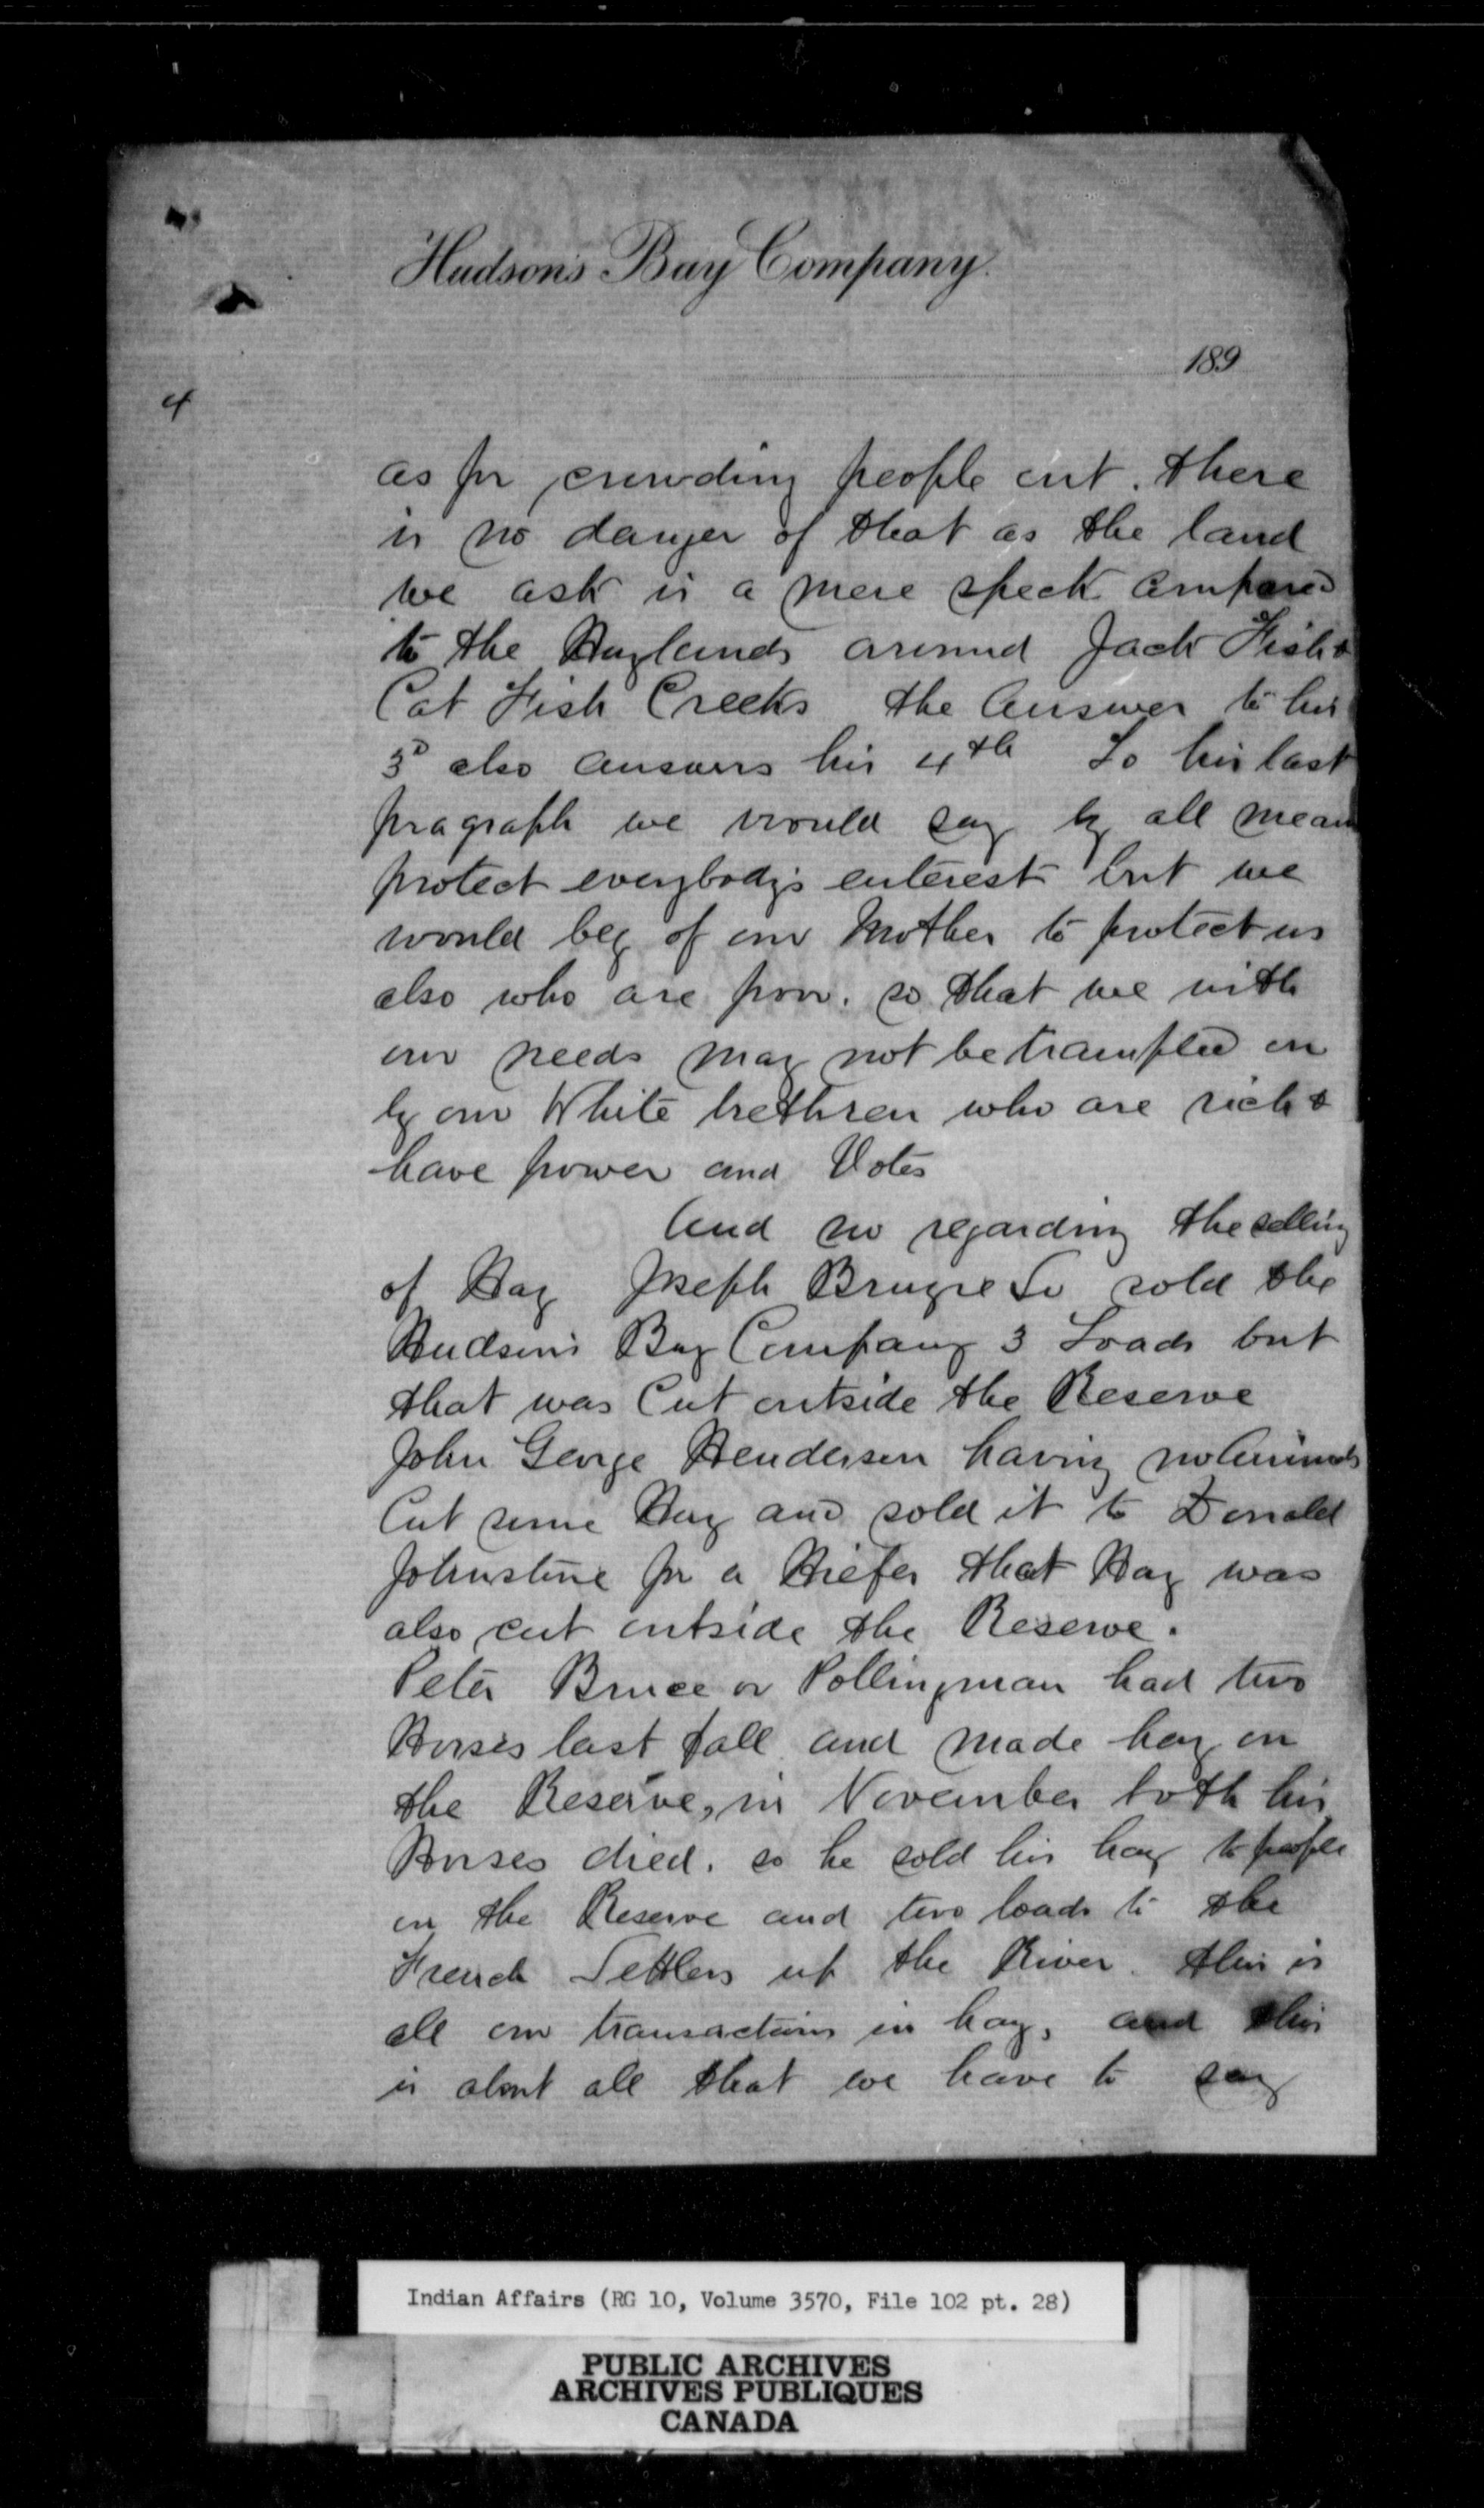 Hudson's Bay Company.
189
4
as for crowding people out. there
is no danger of that as the land
we ask is a mere speck compared
to the Haylands around Jack Fish &
Cat Fish Creeks the Answer to his
3d also answers his 4th To his last
pragraph we would say by all means
protect everybody's enterest but we
would beg of our Mother to protect us
also who are poor. so that we with
our needs may not be trampled on
by our White brethren who are rich &
have power and Votes
And no regarding the selling
of Hay Joseph sold the
Hudson's Bay Company 3 Loads but
that was Cut outside the Reserve
John George Henderson having no Animals
Cut some Hay and sold it to Donald
Johnstone for a Hiefer that Hay was
also cut outside the Reserve.
Peter Bruce or Pollingman had two
Horses last fall and made hay on
the Reserve, in November both his
Horses died. so he sold his hay to people
on the Reserve and two loads to the
French Settlers up the River. this is
all our transactions in hay, and this
is about all that we have to say
Indian Affairs (RG 10, Volume 3570, File 102 pt. 28)
PUBLIC ARCHIVES
ARCHIVES PUBLIQUES
CANADA